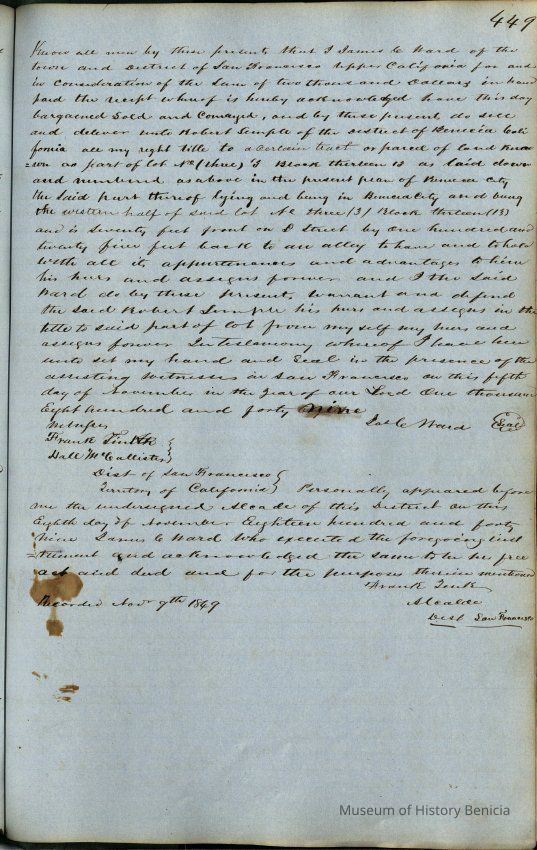 449
Know all men by these presents that I James C Ward of the
town and District of San Francisco Upper California for and
in Consideration of the Sum of two thousand Dollars in hand
paid the recept whereof is hereby acknowledged have this day
bargained Sold and Conveyed, and by these present, do sell
and deliver unto Robert Semple of the district of Benicia Cali
fornia all my right title to a certain tract or parcel of land know
=wn as part of lot No (three) 3 Block thirteen 13 as laid down
and numbered as above in the present plan of Benicia City
the Said part thereof lying and being in Benicia City and being
the western half of said lot No three (3) Block thirteen (13)
and is Seventy feet front on D Street by One hundred and
twenty five feet back to an alley to have and to hold
With all its appurtenances and advantages to him
his heirs and assigns forever and I the Said
Ward do by these Present, Warrant and defend
the Said Robert Semple his heirs and assigns in the
title to said part of lot from my self my heirs and
assigns forever In testimony whereof I have here
unto set my hand and Seal in the presence of the
attesting Witnesses in San Francisco on this fifth
day of November in the Year of our Lord One thousand
Eight hundred and forty nine
Witness Jas C Ward (Seal)
Frank Turk
Hall McCallister
Dist of San Francisco
Territory of California Personally appeared before
me the undersigned Alcade of this District on this
Eighth day of November Eighteen hundred and forty
Nine James C Ward who executed the foregoing inst
=trument and acknowledged the same to be his free
act and deed and for the purposes therein mentioned
Frank Turk
Recorded Novr 9th 1849 Alcalde
Dist San Francisco
Museum of History Benicia